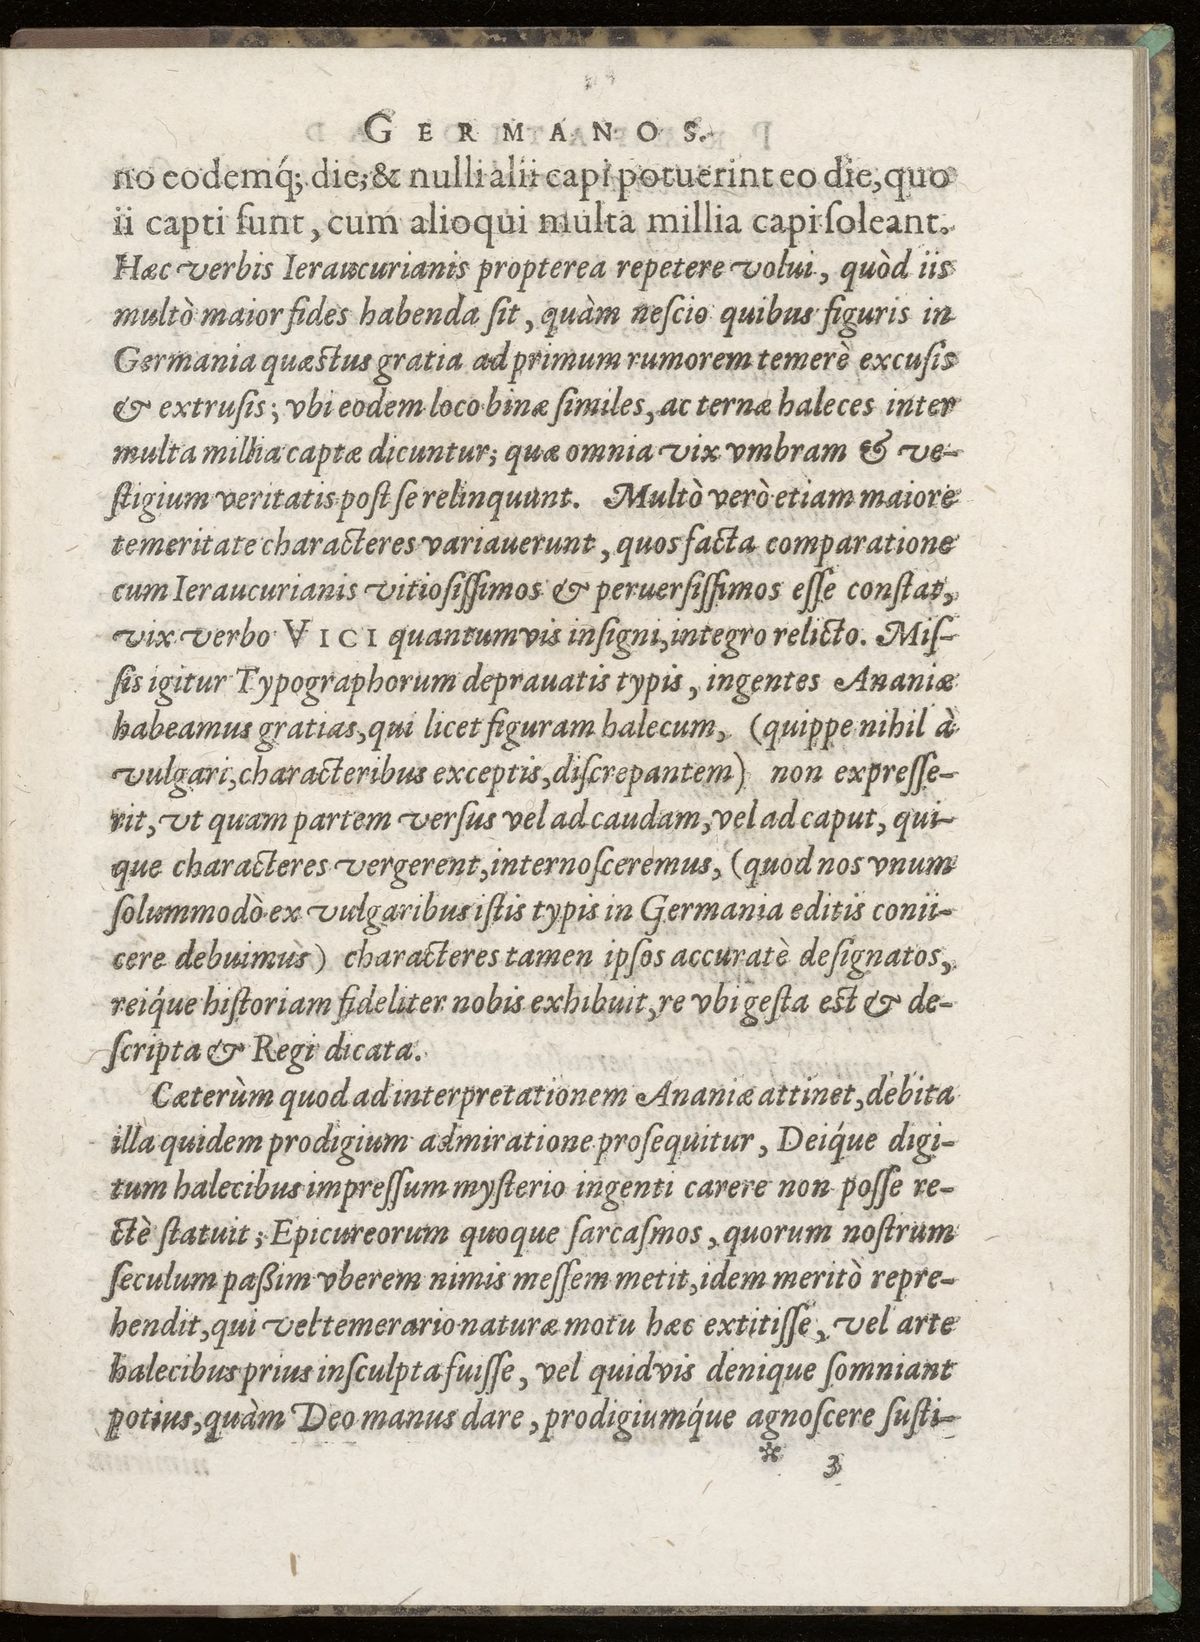 GERMANOS.
no eodemq́; die; & nulli alii capi potuerint eo die, quo
ii capti sunt, cum alioqui multa millia capi ſoleant.
Hæc verbis Ieraucurianis propterea repetere volui, quòd iis
multò maior fides habenda ſit, quàm neſcio quibus figuris in
Germania quæstus gratia ad primum rumorem temerè excuſis
& extruſis; vbi eodem loco binæ ſimiles, ac ternæ haleces inter
multa millia captæ dicuntur; quæ omnia vix vmbram & ve-
ſtigium veritatis poſt ſe relinquunt. Multò verò etiam maiore
temeritate characteres variauerunt, quos facta comparatione
cum Ieraucurianis vitioſiſſimos & peruerſiſſimos eſſe conſtat,
vix verbo VICI quantumvis inſigni, integro relicto. Miſ-
ſis igitur Typographorum deprauatis typis, ingentes Ananiæ
habeamus gratias, qui licet figuram halecum, (quippe nihil à
vulgari, characteribus exceptis, diſcrepantem) non expreſſe-
rit, vt quam partem verſus vel ad caudam, vel ad caput, qui-
que characteres vergerent, internoſceremus, (quod nos vnum
ſolummodò ex vulgaribus iſtis typis in Germania editis conii-
cere debuimus) characteres tamen ipſos accuratè deſignatos,
reiq́ue hiſtoriam fideliter nobis exhibuit, re vbi geſta est & de-
ſcripta & Regi dicata.
Cæterùm quod ad interpretationem Ananiæ attinet, debita
illa quidem prodigium admiratione proſequitur, Deiq́ue digi-
tum halecibus impreſſum myſterio ingenti carere non poſſe re-
ctè ſtatuit; Epicureorum quoque ſarcaſmos, quorum noſtrum
ſeculum paßim vberem nimis meſſem metit, idem meritò repre-
hendit, qui vel temerario naturæ motu hæc extitiſſe, vel arte
halecibus prius inſculpta fuiſſe, vel quidvis denique ſomniant
potius, quàm Deo manus dare, prodigiumq́ue agnoſcere ſuſti-
* 3